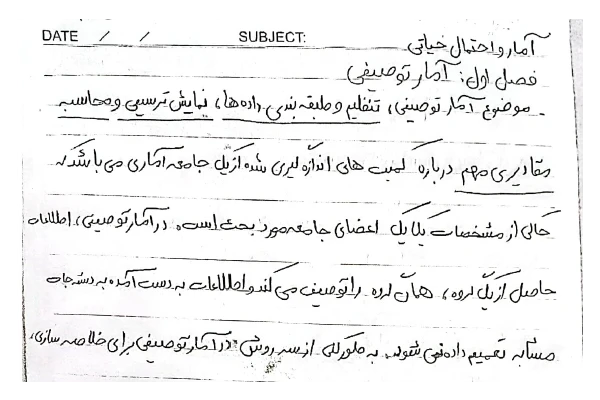 DATE / / SUBJECT:
آمار و احتمال حیاتی
فصل اول: آمار توصیفی
- موضوع آمار توصیفی، تنظیم و طبقه بندی داده ها، نمایش ترسیمی و محاسبه
مقادیری مهم درباره کمیت های اندازه گیری شده از یک جامعه آماری می باشد که
حاکی از مشخصات یکایک اعضای جامعه مورد بحث است. در آمار توصیفی، اطلاعات
حاصل از یک گروه، همان گروه را توصیف می کند و اطلاعات به دست آمده به دسته جات
مشابه تعمیم داده نمی شود. به طور کلی از سه روش در آمار توصیفی برای خلاصه سازی،